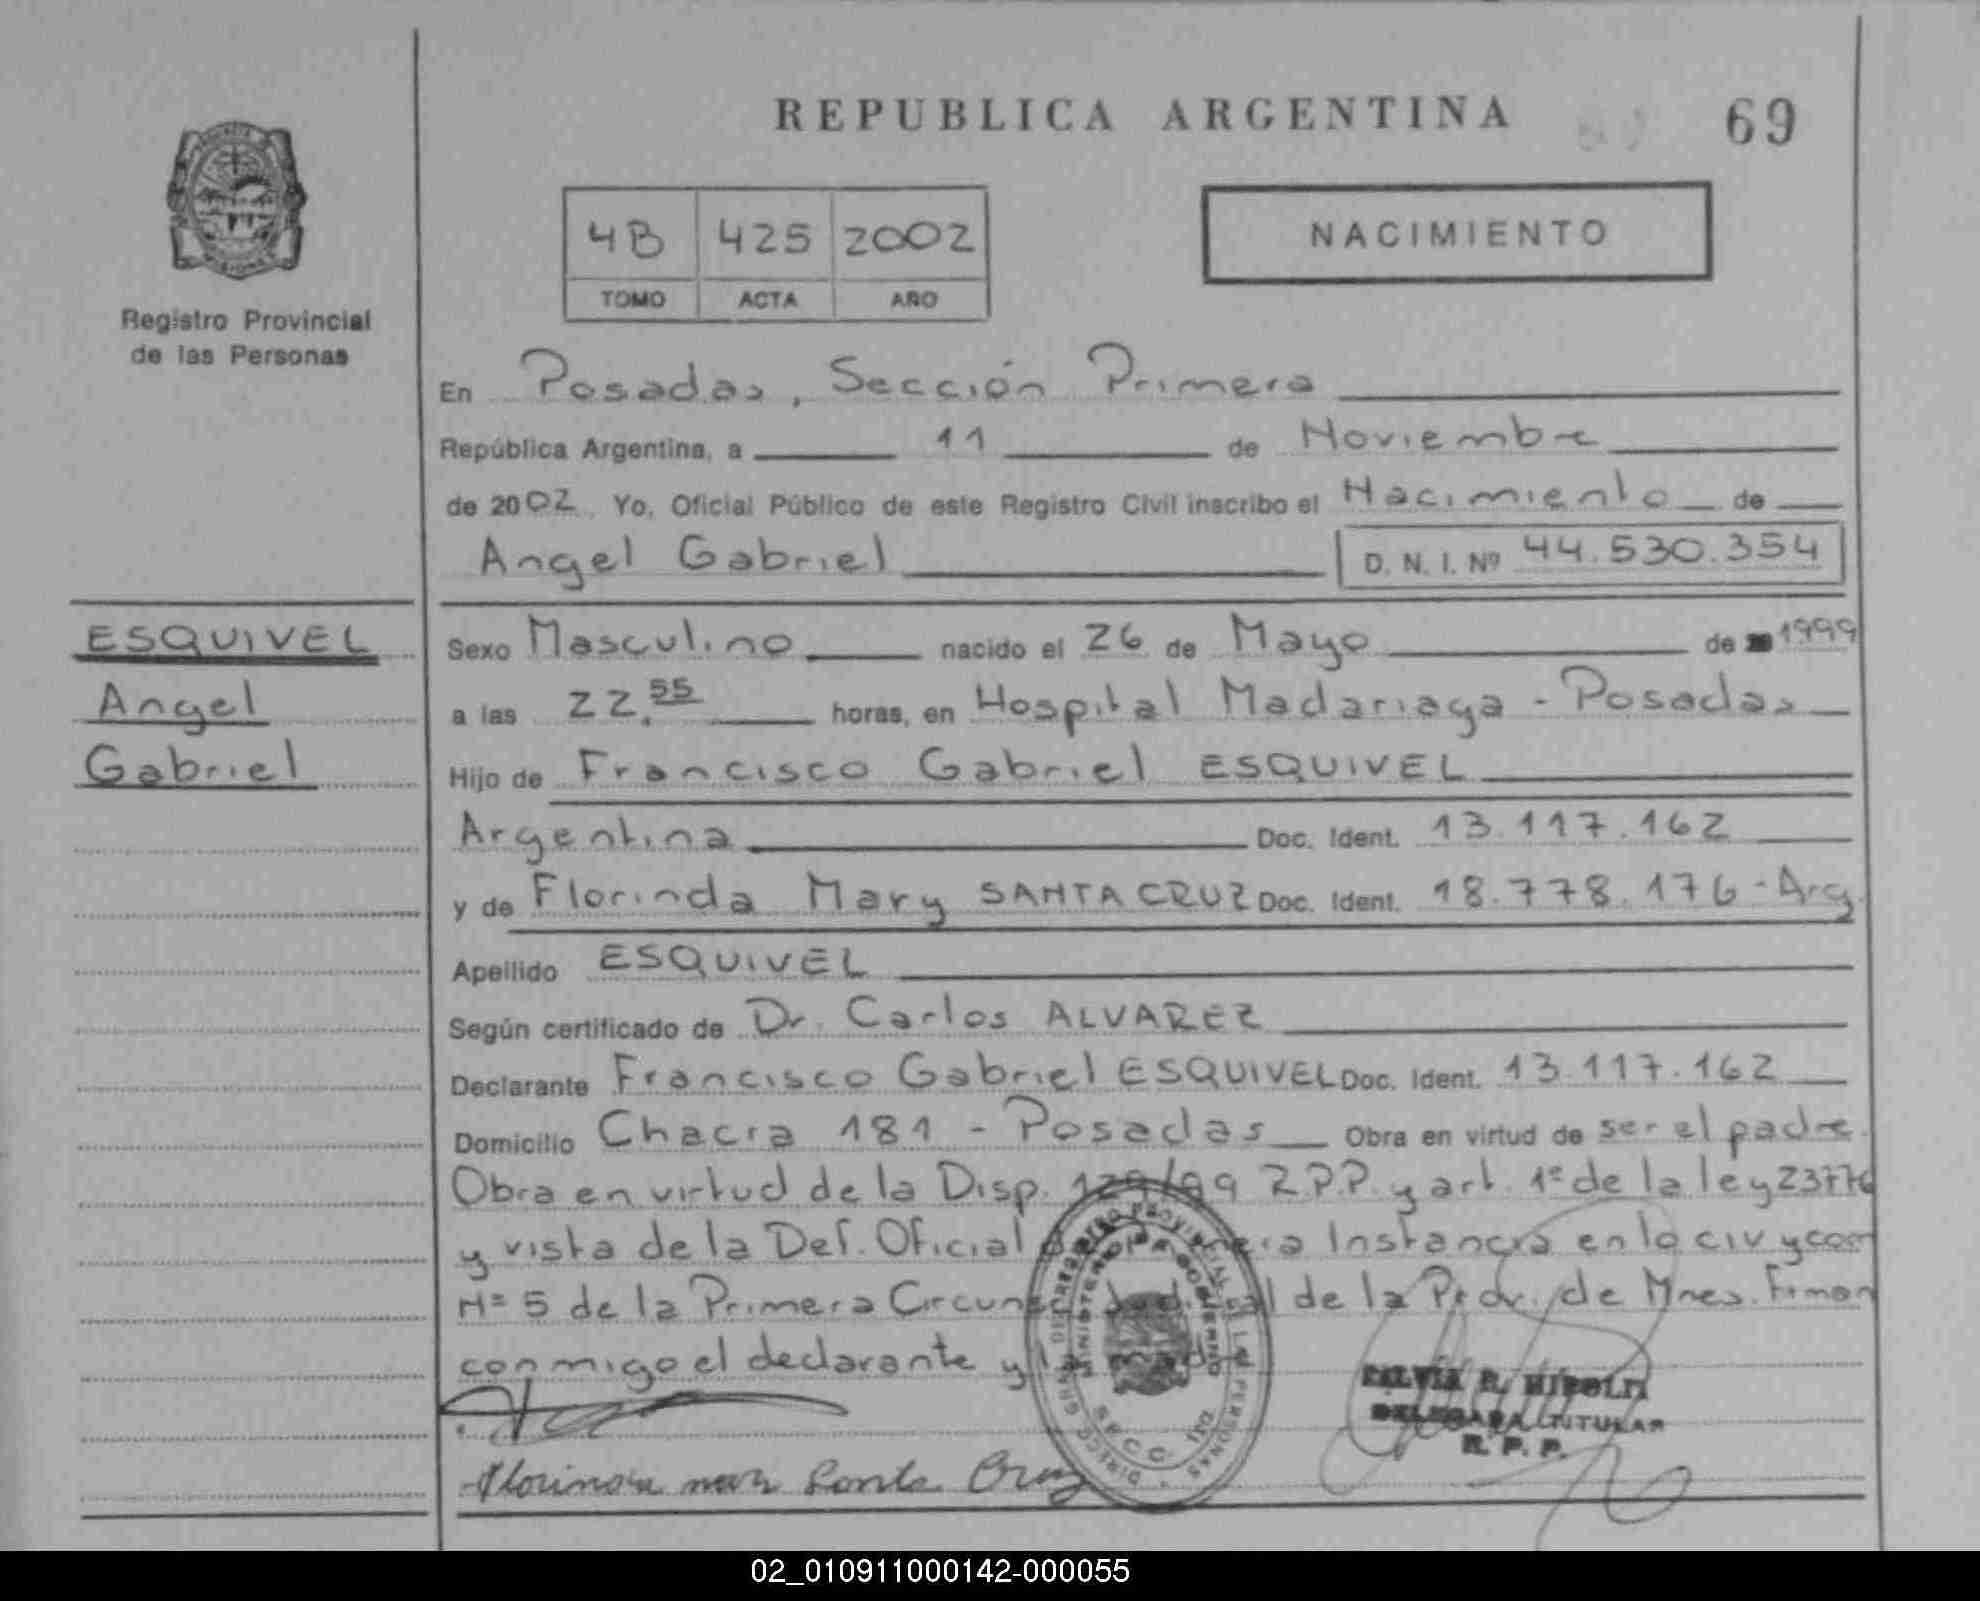 REPUBLICA ARGENTINA
69
4B 425 2002
TOMO ACTA AÑO
NACIMIENTO
Registro Provincial
de las Personas
En Posadas, Sección Primera
República Argentina, a 11 de Noviembre
de 2002. Yo, Oficial Público de este Registro Civil inscribo el Nacimiento de
Angel Gabriel D. N. I. Nº 44.530.354
ESQUIVEL
Angel
Gabriel
Sexo Masculino nacido el 26 de Mayo de 1999
a las 22.55 horas, en Hospital Madariaga - Posadas
Hijo de Francisco Gabriel ESQUIVEL
Argentina Doc. Ident. 13.117.162
y de Florinda Mary SANTA CRUZ Doc. Ident. 18.778.176 - Arg.
Apellido ESQUIVEL
Según certificado de Dr. Carlos ALVAREZ
Declarante Francisco Gabriel ESQUIVEL Doc. Ident. 13.117.162
Domicilio Chacra 181 - Posadas Obra en virtud de ser el padre.
Obra en virtud de la Disp. 129/99 R.P.P. y art. 1º de la ley 23776
y vista de la Def. Oficial Instancia en lo civ y com
Nº 5 de la Primera Circuns. Judicial de la Prov. de Mnes. Firman
conmigo el declarante y
Santa Cruz
MINISTERIO DE GOBIERNO
DELEGADA TITULAR
R. P. P.
02_010911000142-000055